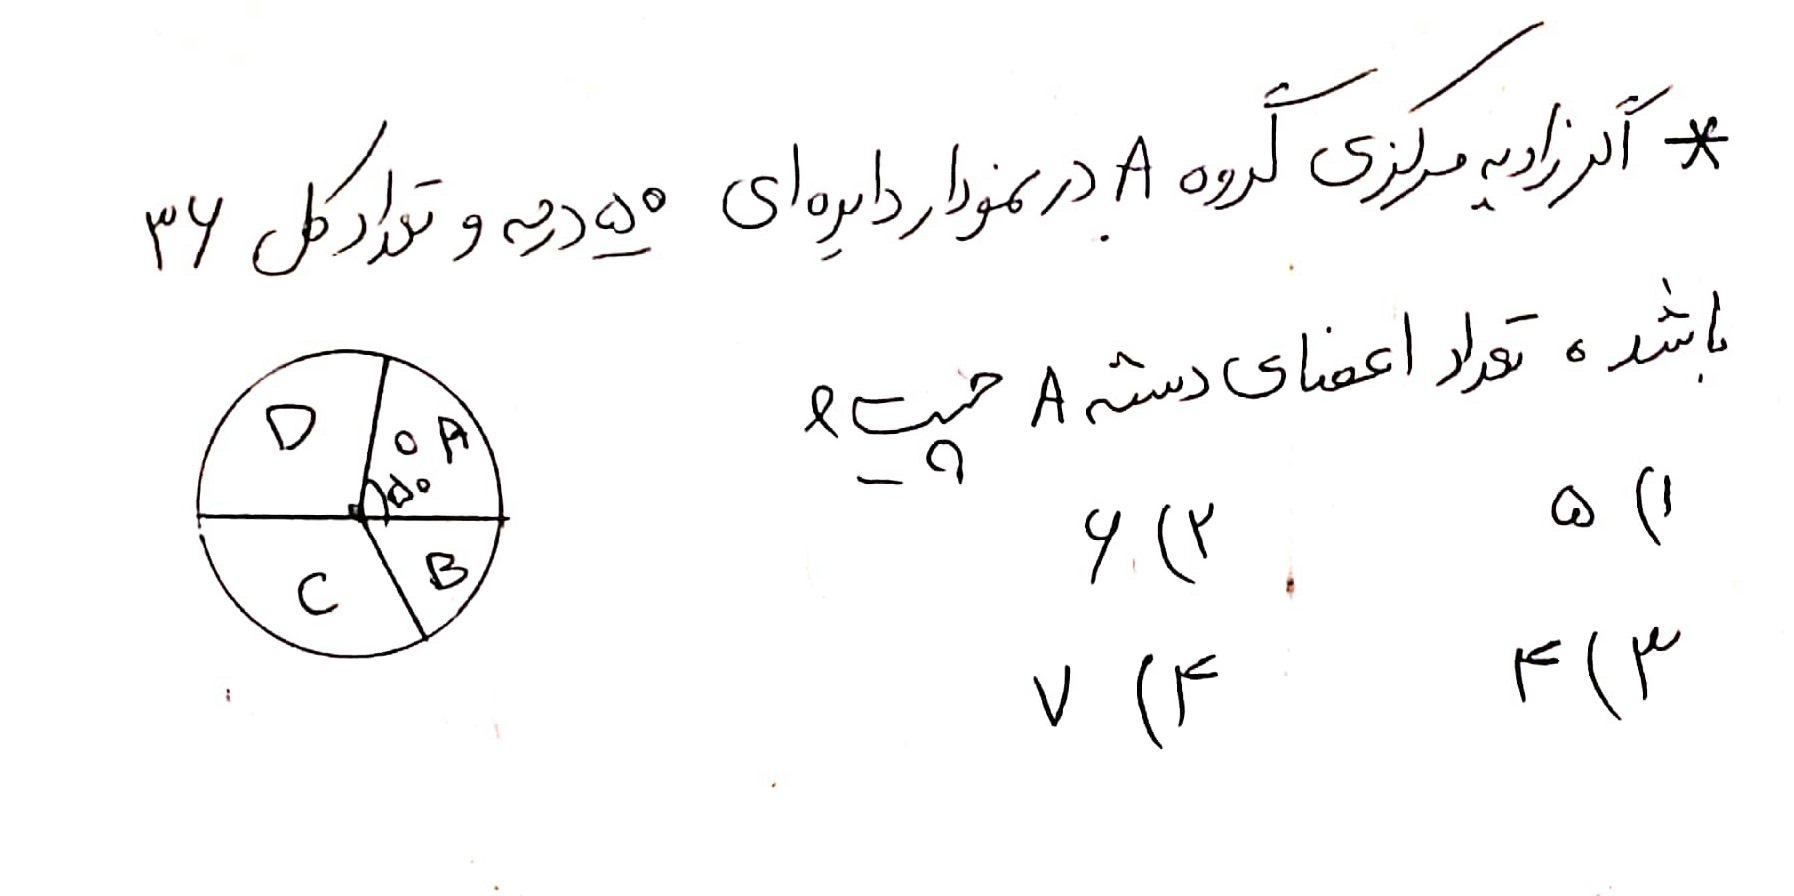 * اگر زاویه مرکزی گروه A در نمودار دایره‌ای ۵۰ درجه و تعداد کل ۳۶
باشد، تعداد اعضای دسته A چیست؟
۱) ۵
۲) ۶
۳) ۴
۴) ۷
D
A
۵۰
C
B